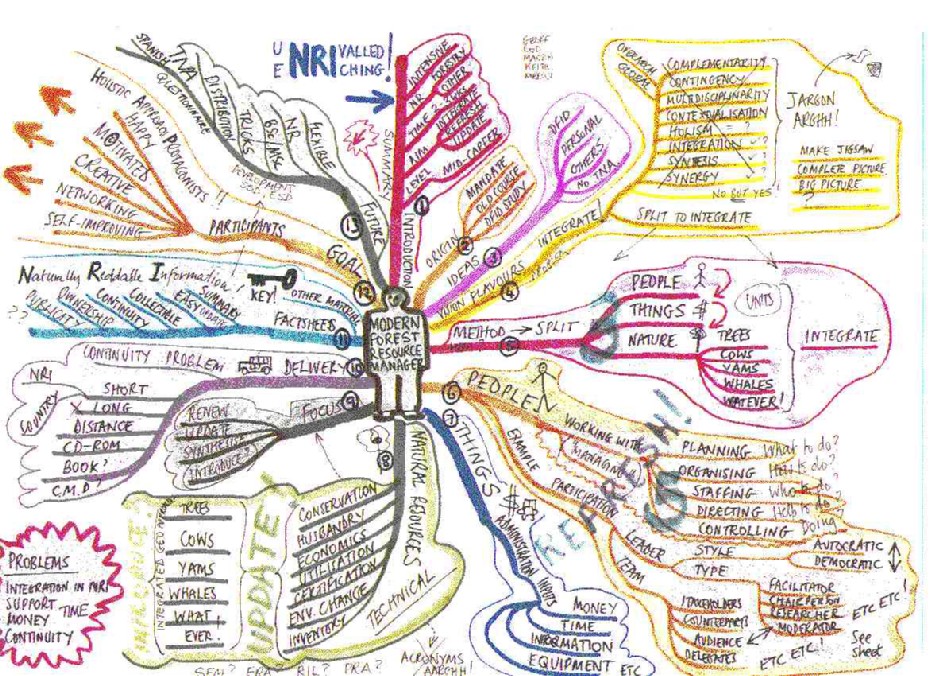 U NRI VALLED
E CHING!
SPANISH TNA
QUESTIONNAIRE
DISTRIBUTION
TRICKS
BSC/MSC
NR
FLEXIBLE
13
FUTURE
SUMMARY
INTENSIVE
NR FORESTRY
OTHER
TIME 2-3 WKS
INTEGRATE
REFRESH
AIM UPDATE
LEVEL MID-CAREER
1 INTRODUCTION
MANDATE
OLD COURSE
DFID STUDY
ORIGIN
2
DFID
PERSONAL
OTHERS
NO TNA
IDEAS 3
RESEARCH
GLOBAL
COMPLEMENTARITY
CONTINGENCY
MULTIDISCIPLINARITY
CONTEXTUALISATION
HOLISM
INTEGRATION
SYNTESIS
SYNERGY
NO BUT YES!
JARGON
ARGHH!
MAKE JIGSAW
COMPLETE PICTURE
BIG PICTURE
INTEGRATE!
SPLIT TO INTEGRATE
4
FLAVOURS
HOLISTIC APPROACH PROTAGONISTS!!
HAPPY
MOTIVATED
CREATIVE
NETWORKING
SELF-IMPROVING
PARTICIPANTS
GOAL
12
Naturally Reddable Information
PUBLICITY
OWNERSHIP
CONTINUITY
COLLECTIBLE
EASY
SUMMARY
KEY!
OTHER MATERIAL
FACTSHEETS
11
??
MODERN
FOREST
RESOURCE
MANAGER
METHOD → SPLIT
5
PEOPLE
THINGS $
NATURE
UNITS
TREES
COWS
YAMS
WHALES
WATEVER!
INTEGRATE
CONTINUITY PROBLEM
DELIVERY 10
NRI
COUNTRY
SHORT
X LONG
DISTANCE
CD-ROM
BOOK?
C.M.D?
FOCUS 9
RENEW
UPDATE
SYNTHESISE
INTRODUCE?
6 PEOPLE
EXAMPLE
WORKING WITH
MANAGING
PARTICIPATION
PLANNING What to do?
ORGANISING How to do?
STAFFING Who to do
DIRECTING Help to do
CONTROLLING Doing
LEADER
STYLE
AUTOCRATIC
DEMOCRATIC
TYPE
TEAM
STAKEHOLDERS
COUNTERPARTS
AUDIENCE
DELEGATES
FACILITATOR
CHAIRPERSON
RESEARCHER
MODERATOR
ETC ETC!
ETC ETC!
See
sheet
REFRESH!
7 THINGS
$
ADMINISTRATION INPUTS
MONEY
TIME
INFORMATION
EQUIPMENT ETC
8
NATURAL RESOURCES
TECHNICAL
CONSERVATION
HUSBANDRY
ECONOMICS
UTILISATION
CERTIFICATION
ENV. CHANGE
INVENTORY
UPDATE?
INTRODUCE?
TREES
COWS
YAMS
WHALES
WHAT,
EVER.
ACRONYMS
AARGHH!
PROBLEMS
INTEGRATION IN NRI
SUPPORT TIME
MONEY
CONTINUITY